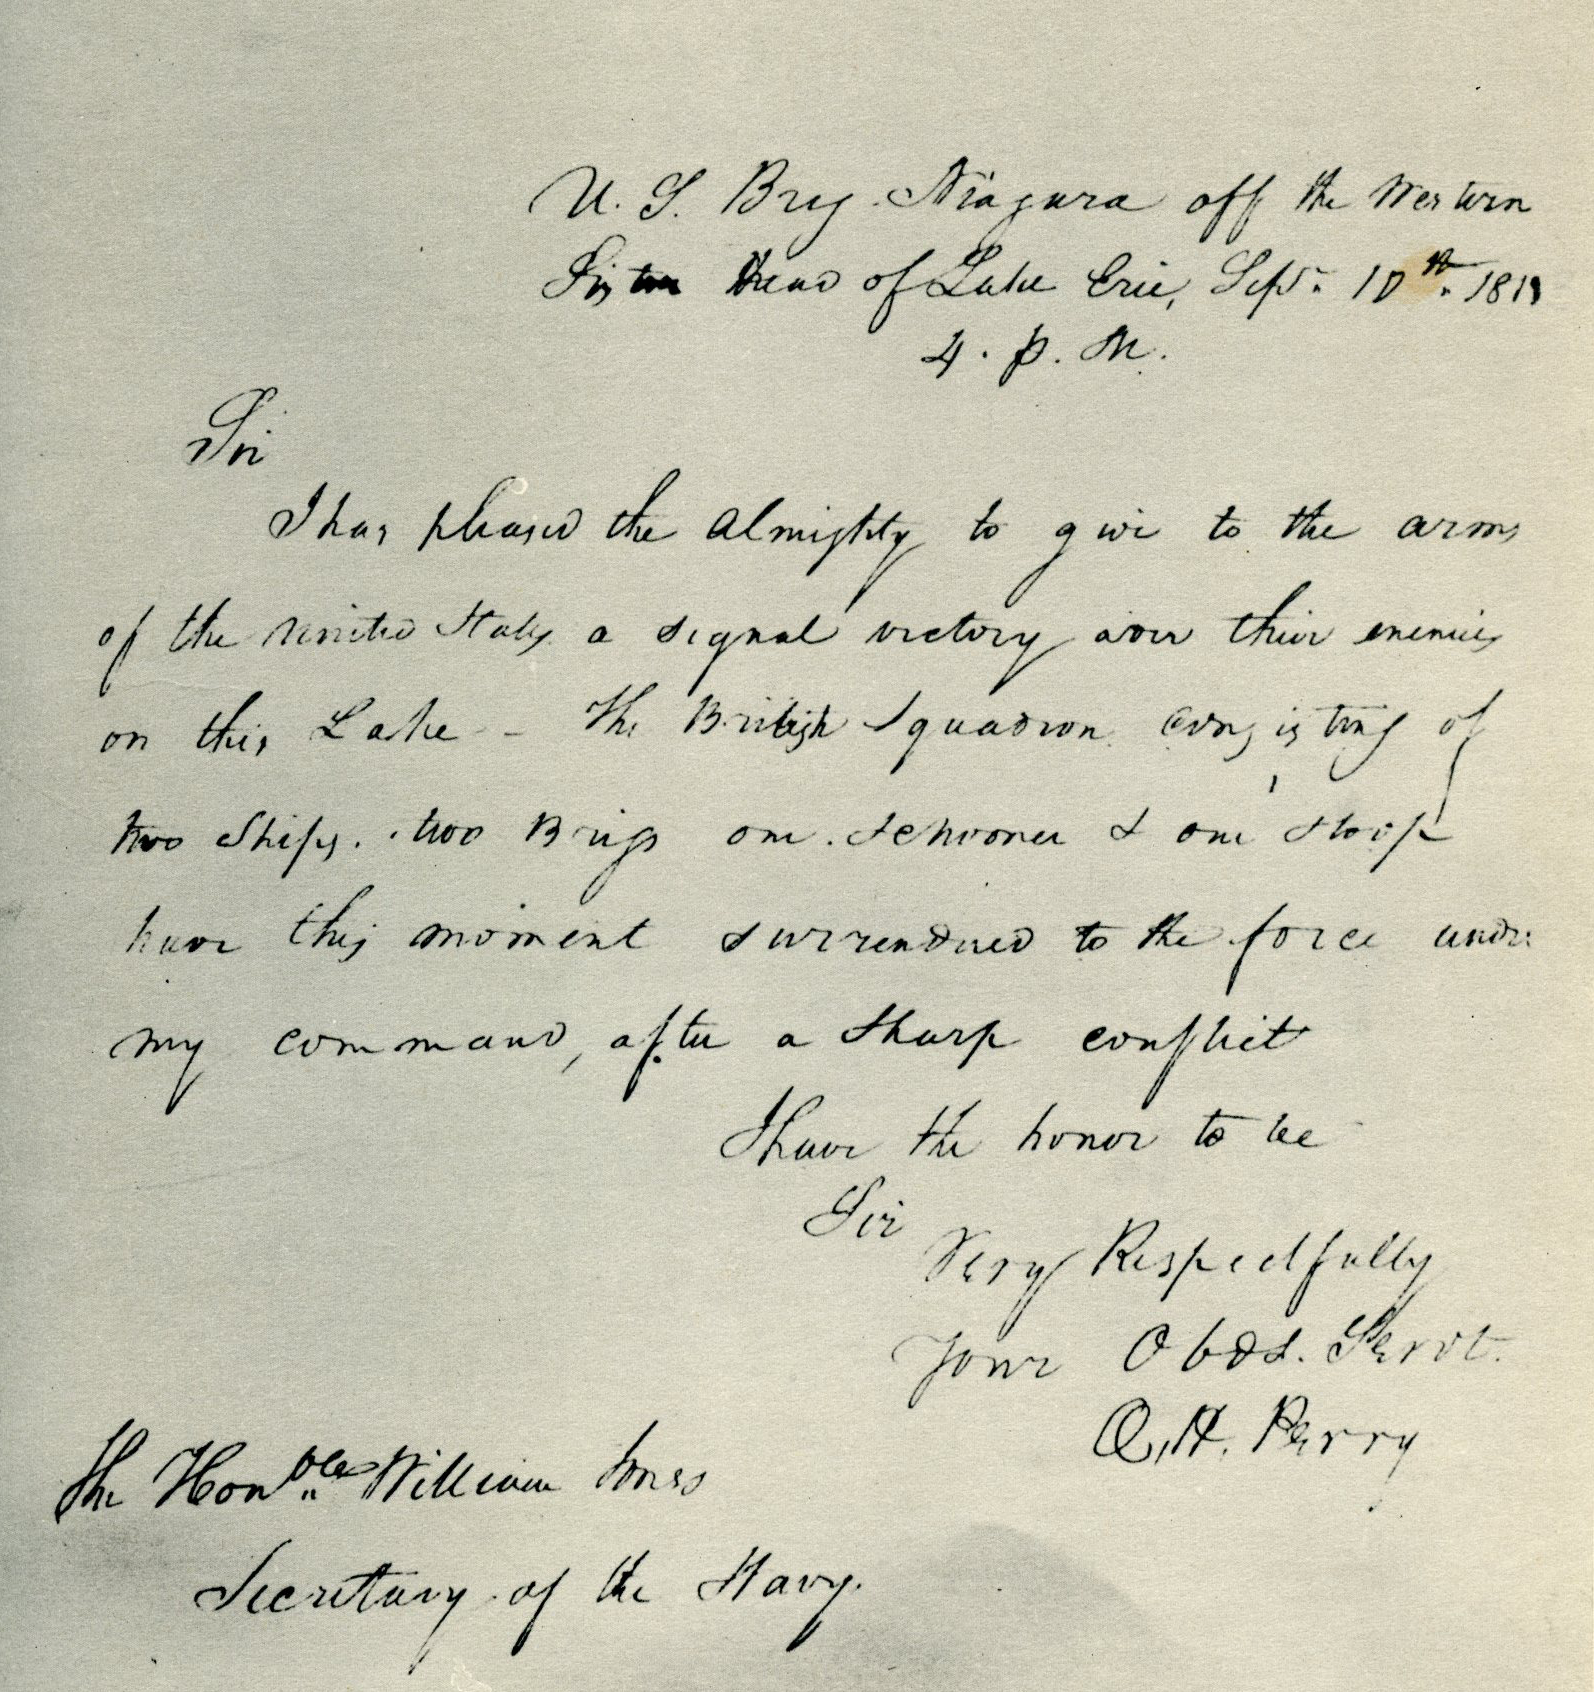 U. S. Brig Niagara off the Western
Sister Head of Lake Erie, Sept. 10th. 1813
4. p. M.
Sir
It has pleased the Almighty to give to the arms
of the United States a signal victory over their enemies
on this Lake - The British Squadron consisting of
two Ships. two Brigs one. Schooner & one Sloop
have this moment surrendered to the force under
my command, after a Sharp conflict
I have the honor to be
Sir
Very Respectfully
Your Obdt. Servt.
O. H. Perry
The Honble William Jones
Secretary of the Navy.